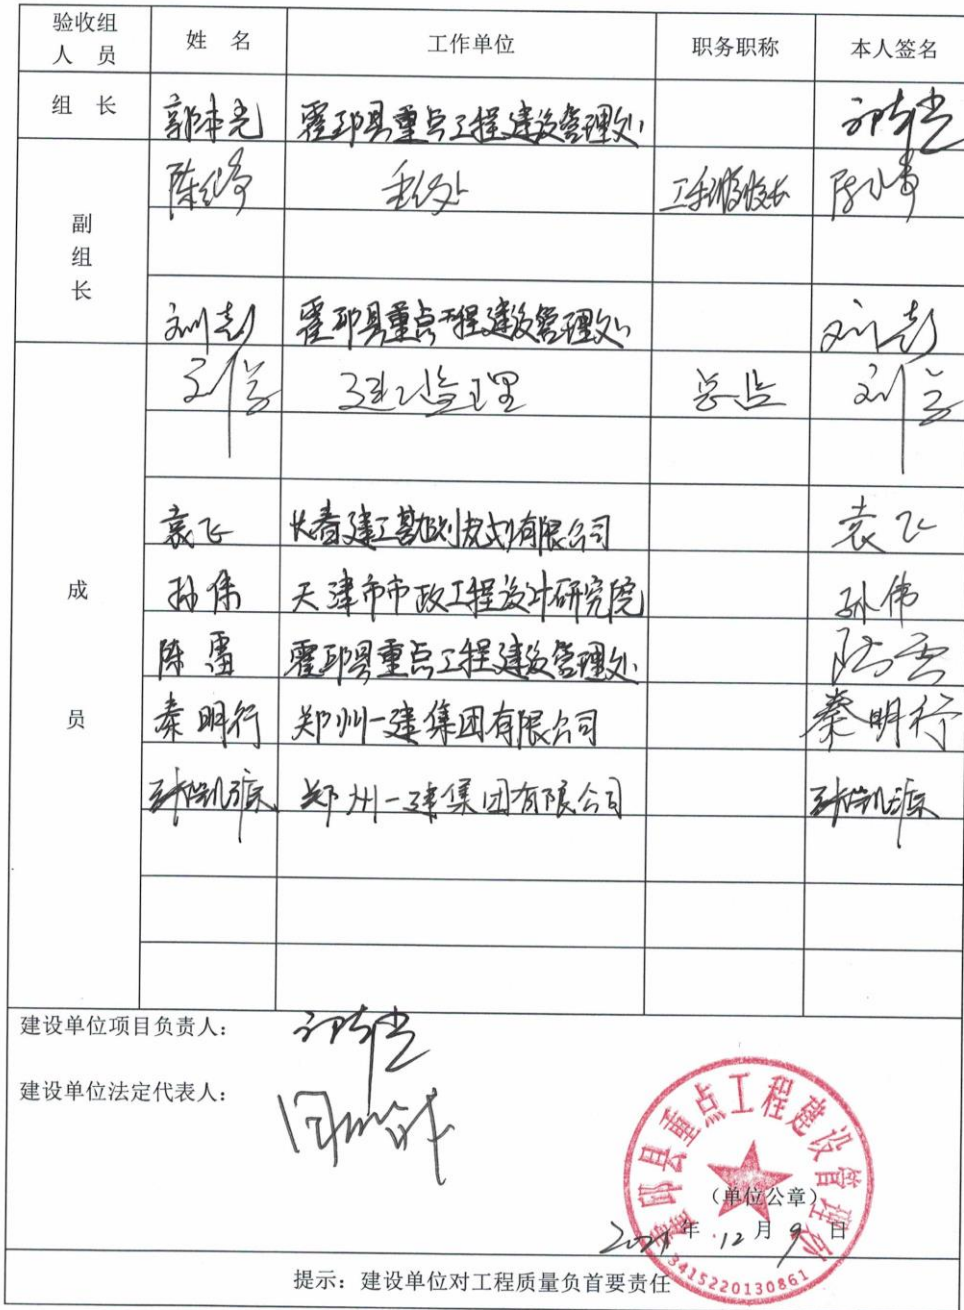 验收组人员 姓 名 工作单位 职务职称 本人签名
组 长 郭本光 霍邱县重点工程建设管理处
副组长 重点处
刘彭 霍邱县重点工程建设管理处 刘彭
成员 监理 总监
袁飞 有限公司 袁飞
孙伟 天津市市政工程设计研究院 孙伟
陈雷 霍邱县重点工程建设管理处 陈雷
秦明行 郑州一建集团有限公司 秦明行
郑州一建集团有限公司
建设单位项目负责人：
建设单位法定代表人：
霍邱县重点工程建设管理处
（单位公章）
2021年12月9日
3415220130861
提示：建设单位对工程质量负首要责任